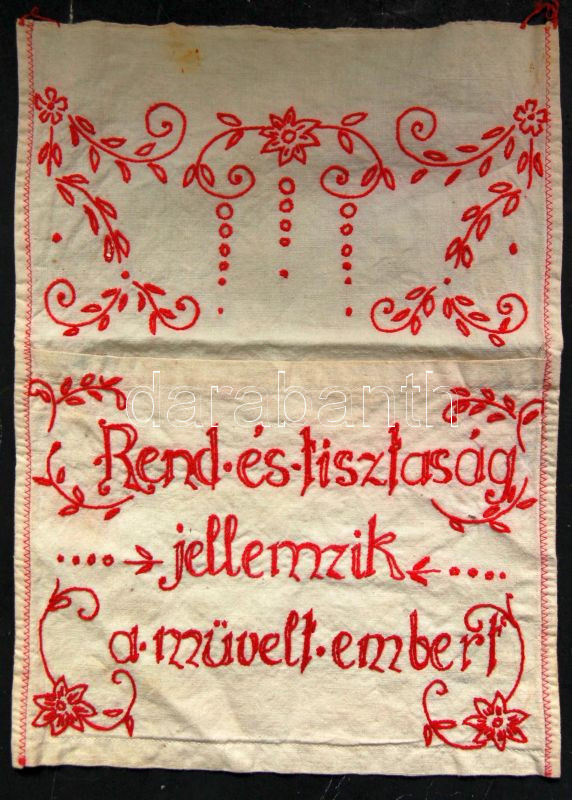 darabanth
Rend·és·tisztaság
jellemzik
a·müvelt·embert